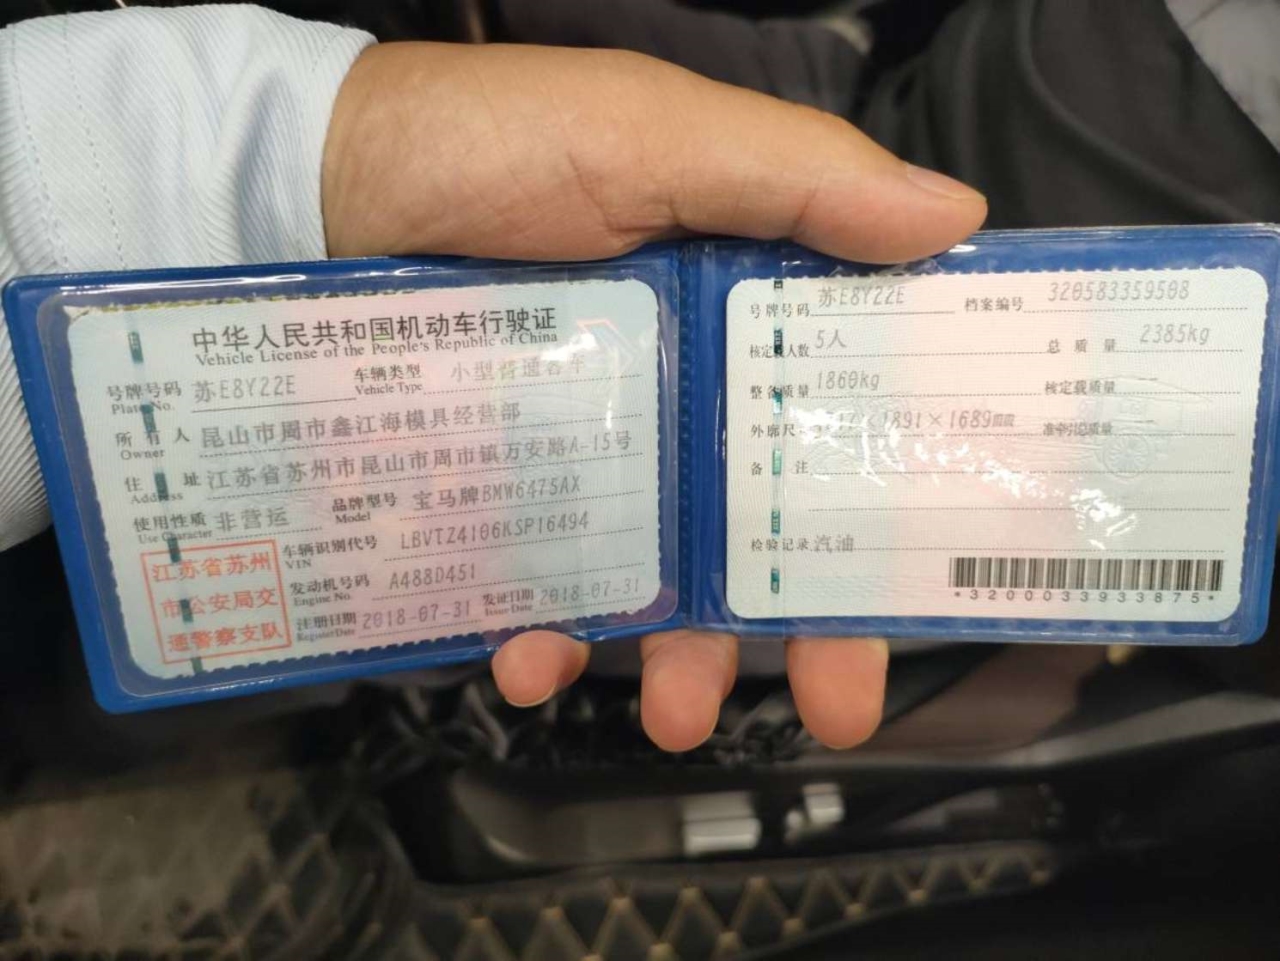 中华人民共和国机动车行驶证
Vehicle License of the People's Republic of China
号牌号码 苏E8Y22E 车辆类型 小型普通客车
Plate No. Vehicle Type
所有人 昆山市周市鑫江海模具经营部
Owner
住址 江苏省苏州市昆山市周市镇万安路A-15号
Address
使用性质 非营运 品牌型号 宝马牌BMW6475AX
Use Character Model
车辆识别代号 LBVTZ4106KSP16494
VIN
发动机号码 A488D451
Engine No.
注册日期 2018-07-31 发证日期 2018-07-31
Register Date Issue Date
江苏省苏州
市公安局交
通警察支队
号牌号码 苏E8Y22E 档案编号 320583359508
核定载人数 5人 总质量 2385kg
整备质量 1860kg 核定载质量 —
外廓尺 1891×1689 准牵引总质量 —
备注
检验记录 汽油
*3200033933875*